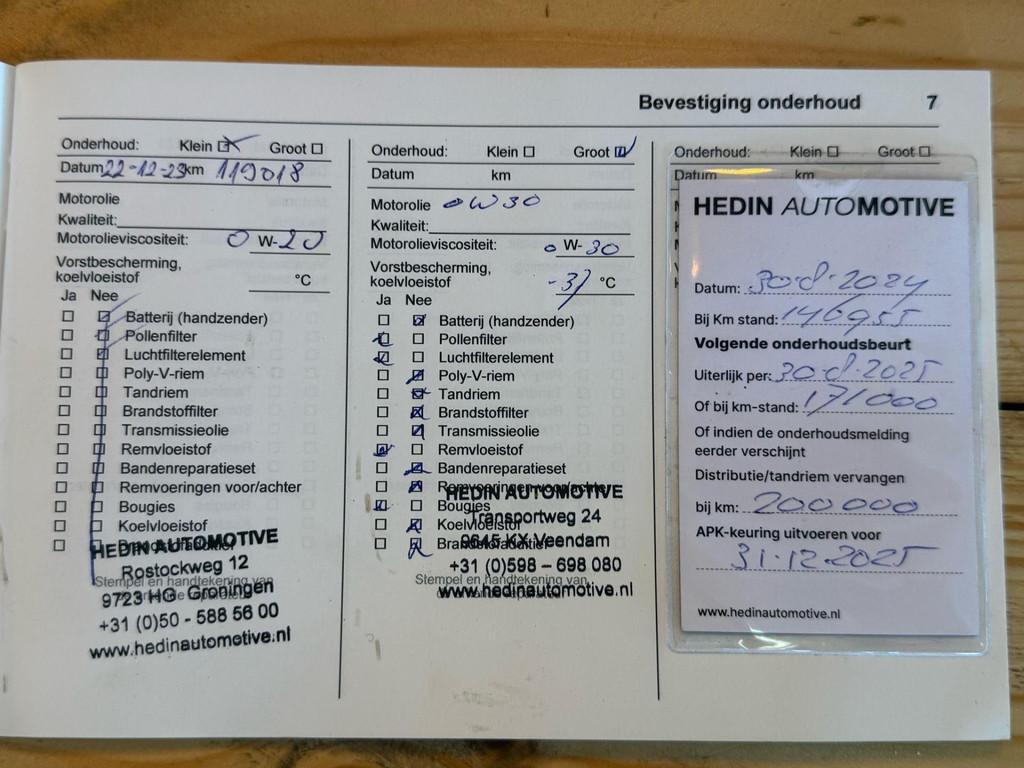 Bevestiging onderhoud 7
Onderhoud: Klein Groot
Datum 22-12-23 km 119018
Motorolie
Kwaliteit:
Motorolieviscositeit: 0 W-20
Vorstbescherming,
koelvloeistof °C
Ja Nee
Batterij (handzender)
Pollenfilter
Luchtfilterelement
Poly-V-riem
Tandriem
Brandstoffilter
Transmissieolie
Remvloeistof
Bandenreparatieset
Remvoeringen voor/achter
Bougies
Koelvloeistof
HEDIN AUTOMOTIVE
Rostockweg 12
Stempel en handtekening van
9723 HG Groningen
+31 (0)50 - 588 56 00
www.hedinautomotive.nl
Onderhoud: Klein Groot
Datum km
Motorolie 0W30
Kwaliteit:
Motorolieviscositeit: 0 W-30
Vorstbescherming,
koelvloeistof -37 °C
Ja Nee
Batterij (handzender)
Pollenfilter
Luchtfilterelement
Poly-V-riem
Tandriem
Brandstoffilter
Transmissieolie
Remvloeistof
Bandenreparatieset
Remvoeringen voor/achter
HEDIN AUTOMOTIVE
Bougies
Transportweg 24
Koelvloeistof
9645 KX Veendam
Brandstofadditief
+31 (0)598 – 698 080
Stempel en handtekening van
www.hedinautomotive.nl
Onderhoud: Klein Groot
Datum km
HEDIN AUTOMOTIVE
Datum: 30-8-2024
Bij Km stand: 146955
Volgende onderhoudsbeurt
Uiterlijk per: 30-8-2025
Of bij km-stand: 171000
Of indien de onderhoudsmelding
eerder verschijnt
Distributie/tandriem vervangen
bij km: 200000
APK-keuring uitvoeren voor
31-12-2025
www.hedinautomotive.nl